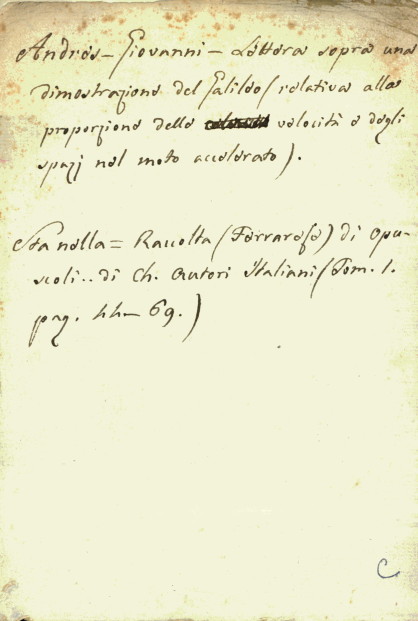 Andres - Giovanni - Lettera sopra una
dimostrazione del Galileo (relativa alla
proporzione delle velocità e degli
spazj nel moto accelerato).
Sta nella = Raccolta (Ferrarese) di Opu-
scoli .. di Ch. Autori Italiani (Tom. 1.
pag. 44 - 69.)
C.